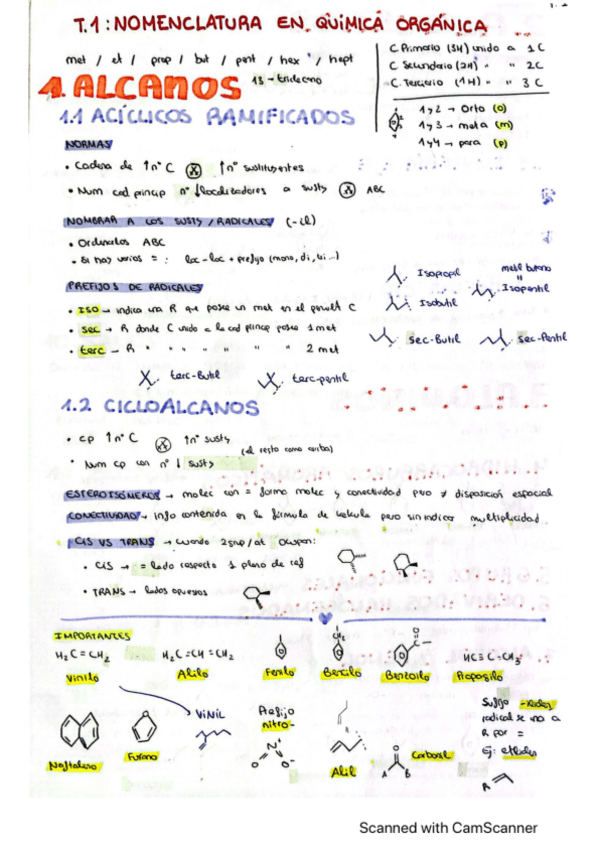 T.1: NOMENCLATURA EN QUÍMICA ORGÁNICA
met / et / prop / but / pent / hex / hept
13 → tridecano
C. Primario (3H) unido a 1C
C. Secundario (2H) " " 2C
C. Terciario (1H) " " 3C
1 y 2 → Orto (o)
1 y 3 → meta (m)
1 y 4 → para (p)
1. ALCANOS
1.1 ACÍCLICOS RAMIFICADOS
NORMAS
• Cadena de ↑nº C ↑nº sustituyentes
• Num cad princip nº ↓localizadores a susts ABC
NOMBRAR A LOS SUSTS / RADICALES (-il)
• Ordenarlos ABC
• Si hay varios = : loc-loc + prefijo (mono, di, tri...)
PREFIJOS DE RADICALES
• ISO → indica una R que posee un met en el penult C
• sec → R donde C unido a la cad princip posee 1 met
• terc → R " " " " " " 2 met
Isopropil
metil butano
"
Isopentil
Isobutil
sec-Butil
sec-Pentil
terc-Butil
terc-pentil
1.2 CICLOALCANOS
• cp ↑nº C ↑nº susts
(el resto como arriba)
• Num cp con nº ↓ susts
ESTEROISÓMEROS → molec con = forma molec y conectividad pero ≠ disposición espacial
CONECTIVIDAD → info contenida en la fórmula de pero sin indicar multiplicidad
CIS VS TRANS → cuando 2 grup/at ocupan:
• CIS → = lado respecto 1 plano de ref
• TRANS → lados opuestos
IMPORTANTES
H₂C=CH₂
Vinilo
H₂C=CH=CH₂
Alilo
Fenilo
CH₂
Bencilo
O
Benzoilo
HC≡C-CH₃
Propagilo
Naftaleno
O
Furano
VINIL
Prefijo
nitro-
N⁺
O O⁻
Alil
O
A B
Carbonil
Sufijo -ilideno
radical se una a
R por =
Ej: etiliden
R
Scanned with CamScanner